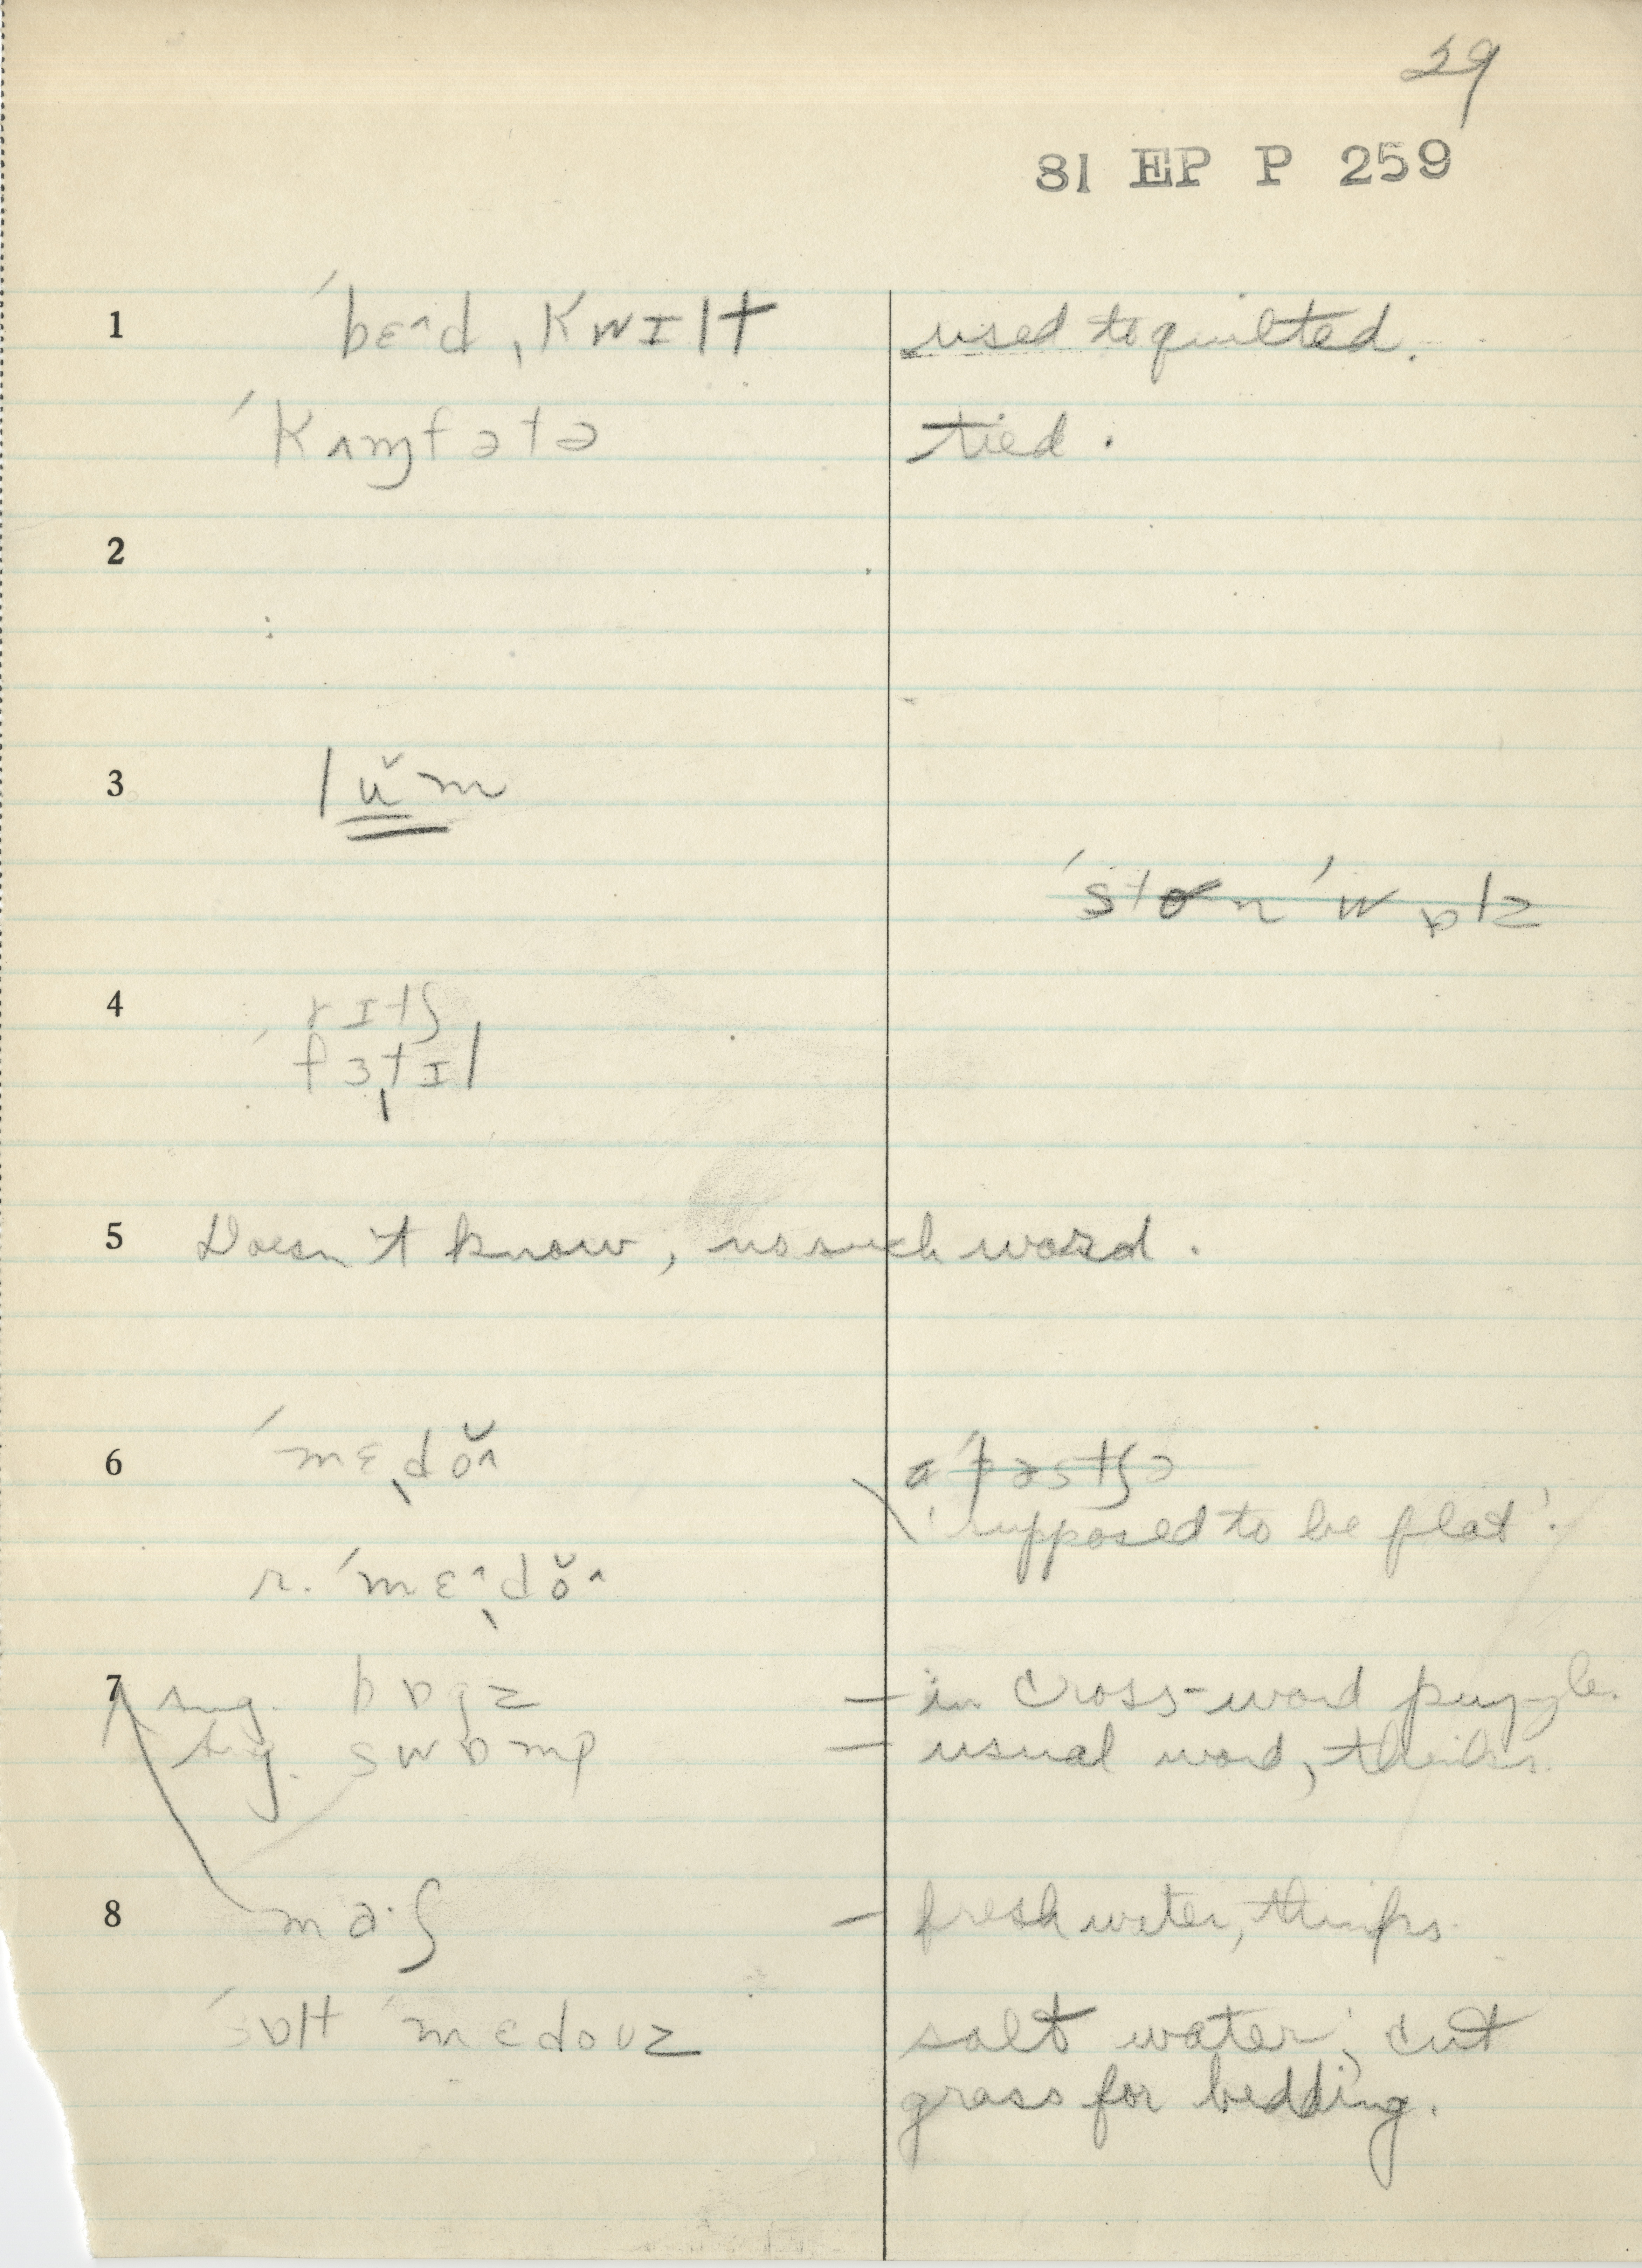 29
81 EP P 259
1 ˈbɛ^d ˌkwɪlt used to quilted.
ˈkʌɱfətə tied.
2
3 lŭm
ˈston ˈwɒlz
4 rɪtʃ
ˈfɜt̩ɪl
5 Doesn't know, no such word.
6 ˈmɛd̩ŏ^ a ˈpastʃə
'supposed to be flat'.
r. ˈmɛ^d̩ŏ^
7 sug. bɒgz – in cross-word puzzles.
sug. swɒmp – usual word, thinks.
8 ma·ʃ – fresh water, thinks.
ˈsɒlt ˈmɛdoʊz salt water; cut
grass for bedding.